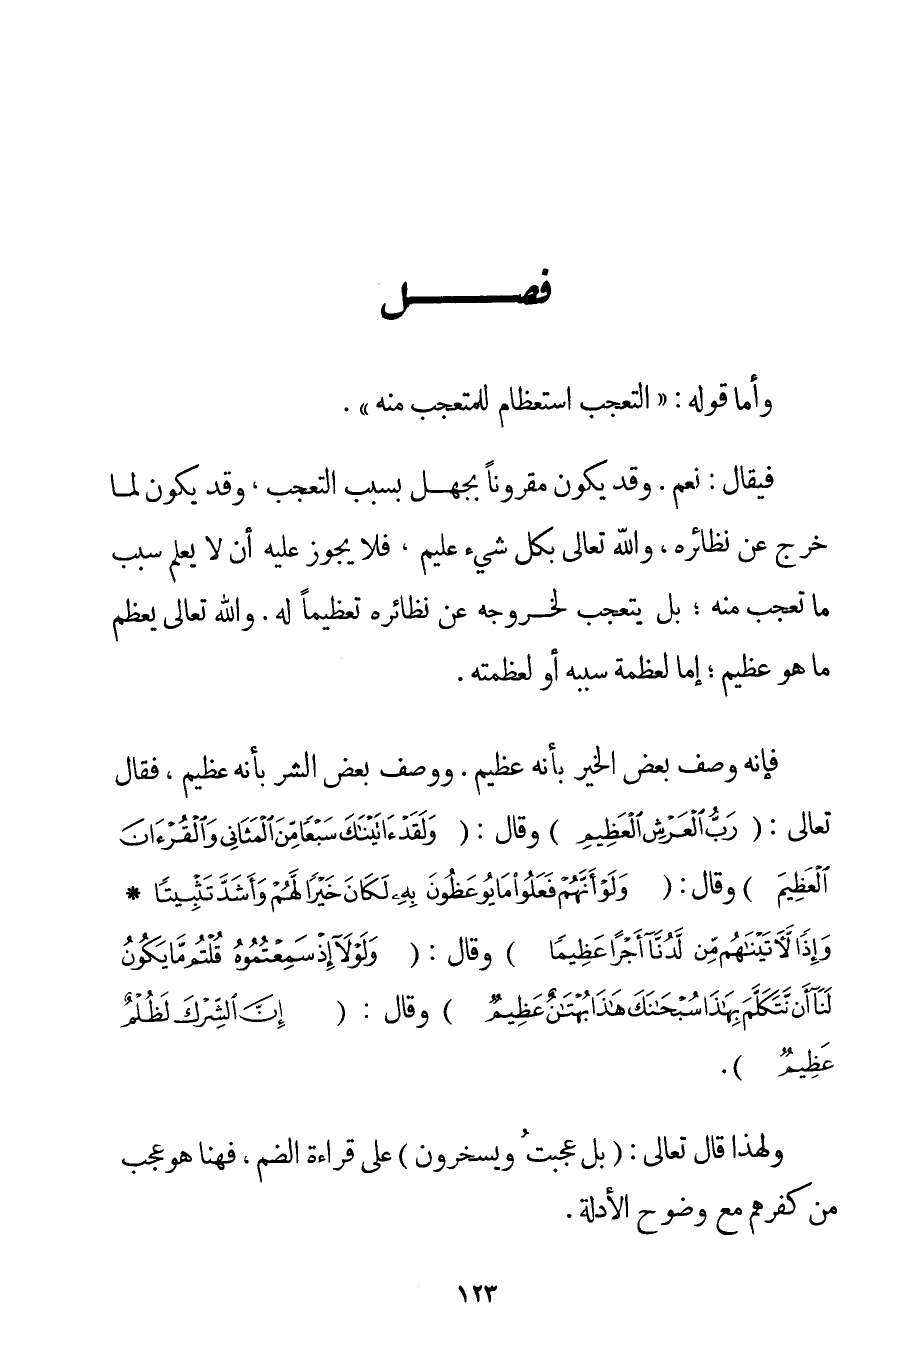 فصـــــــل
وأما قوله : « التعجب استعظام للمتعجب منه » .
فيقال : نعم . وقد يكون مقروناً بجهـــل بسبب التعجب ، وقد يكون لمـا
خرج عن نظائره ، والله تعالى بكل شيء عليم ، فلا يجوز عليه أن لا يعلم سبب
ما تعجب منه ؛ بل يتعجب لخـــروجه عن نظائره تعظيماً له . والله تعالى يعظم
ما هو عظيم ؛ إما لعظمة سببه أو لعظمته .
فإنه وصف بعض الخير بأنه عظيم . ووصف بعض الشر بأنه عظيم ، فقال
تعالى : ( رَبُّ ٱلْعَرْشِ ٱلْعَظِيمِ ) وقال : ( وَلَقَدْ ءَاتَيْنَٰكَ سَبْعًا مِّنَ ٱلْمَثَانِي وَٱلْقُرْءَانَ
ٱلْعَظِيمَ ) وقال : ( وَلَوْ أَنَّهُمْ فَعَلُوا۟ مَا يُوعَظُونَ بِهِۦ لَكَانَ خَيْرًا لَّهُمْ وَأَشَدَّ تَثْبِيتًا *
وَإِذًا لَّآتَيْنَٰهُم مِّن لَّدُنَّآ أَجْرًا عَظِيمًا ) وقال : ( وَلَوْلَآ إِذْ سَمِعْتُمُوهُ قُلْتُم مَّا يَكُونُ
لَنَآ أَن نَّتَكَلَّمَ بِهَٰذَا سُبْحَٰنَكَ هَٰذَا بُهْتَٰنٌ عَظِيمٌ ) وقال : ( إِنَّ ٱلشِّرْكَ لَظُلْمٌ
عَظِيمٌ ) .
ولهذا قال تعالى : ( بل عجبتُ ويسخرون ) على قراءة الضم ، فهنا هو عجب
من كفرهم مع وضوح الأدلة .
١٢٣